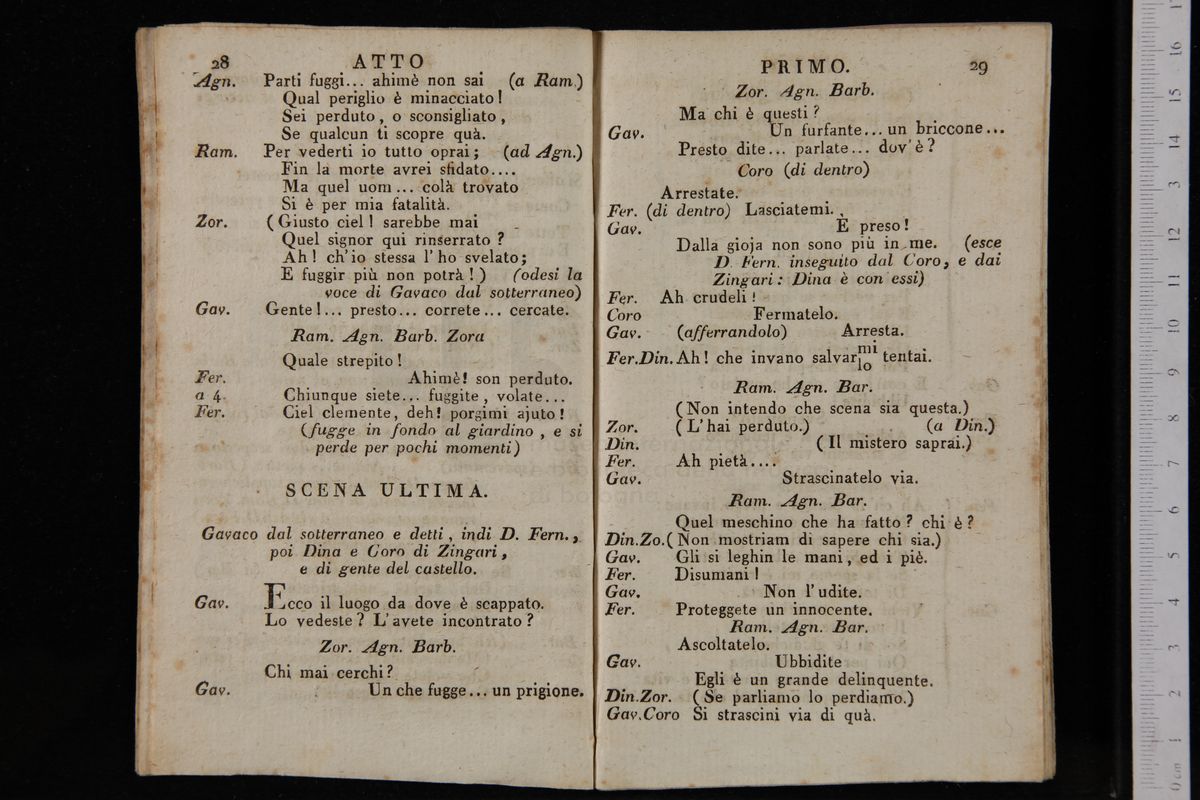 28 ATTO
Agn. Parti fuggi... ahimè non sai (a Ram.)
Qual periglio è minacciato!
Sei perduto, o sconsigliato,
Se qualcun ti scopre quà.
Ram. Per vederti io tutto oprai; (ad Agn.)
Fin la morte avrei sfidato....
Ma quel uom... colà trovato
Si è per mia fatalità.
Zor. (Giusto ciel! sarebbe mai
Quel signor qui rinserrato?
Ah! ch'io stessa l'ho svelato;
E fuggir più non potrà!) (odesi la
voce di Gavaco dal sotterraneo)
Gav. Gente!... presto... correte... cercate.
Ram. Agn. Barb. Zora
Quale strepito!
Fer. Ahimè! son perduto.
a 4. Chiunque siete... fuggite, volate...
Fer. Ciel clemente, deh! porgimi ajuto!
(fugge in fondo al giardino, e si
perde per pochi momenti)
SCENA ULTIMA.
Gavaco dal sotterraneo e detti, indi D. Fern.,
poi Dina e Coro di Zingari,
e di gente del castello.
Gav. Ecco il luogo da dove è scappato.
Lo vedeste? L'avete incontrato?
Zor. Agn. Barb.
Chi mai cerchi?
Gav. Un che fugge... un prigione.
PRIMO. 29
Zor. Agn. Barb.
Ma chi è questi?
Gav. Un furfante... un briccone...
Presto dite... parlate... dov'è?
Coro (di dentro)
Arrestate.
Fer. (di dentro) Lasciatemi.
Gav. È preso!
Dalla gioja non sono più in me. (esce
D. Fern. inseguito dal Coro, e dai
Zingari: Dina è con essi)
Fer. Ah crudeli!
Coro Fermatelo.
Gav. (afferrandolo) Arresta.
Fer.Din. Ah! che invano salvar mi lo tentai.
Ram. Agn. Bar.
(Non intendo che scena sia questa.)
Zor. (L'hai perduto.) (a Din.)
Din. (Il mistero saprai.)
Fer. Ah pietà....
Gav. Strascinatelo via.
Ram. Agn. Bar.
Quel meschino che ha fatto? chi è?
Din.Zo. (Non mostriam di sapere chi sia.)
Gav. Gli si leghin le mani, ed i piè.
Fer. Disumani!
Gav. Non l'udite.
Fer. Proteggete un innocente.
Ram. Agn. Bar.
Ascoltatelo.
Gav. Ubbidite
Egli è un grande delinquente.
Din.Zor. (Se parliamo lo perdiamo.)
Gav.Coro Si strascini via di quà.
0 cm 1 2 3 4 5 6 7 8 9 10 11 12 13 14 15 16 17